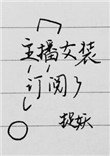 主播女装
订阅了
捉妖